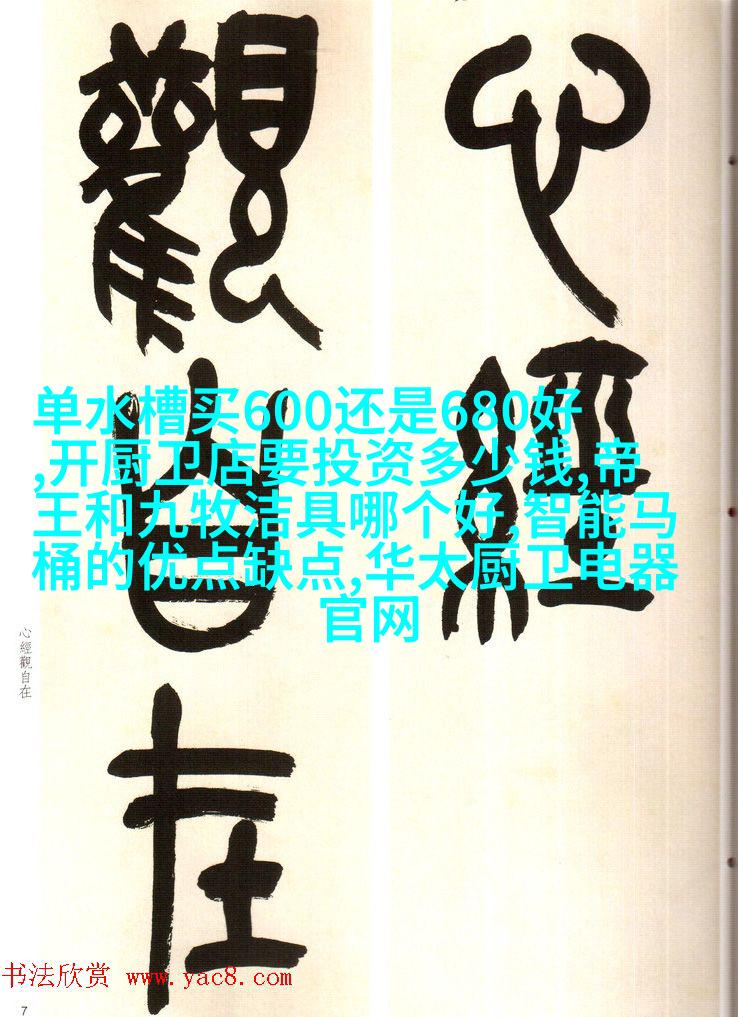 心經
觀自在
单水槽买600还是680好
,开厨卫店要投资多少钱,帝
王和九牧洁具哪个好,智能马
桶的优点缺点,华太厨卫电器
官网
心經觀自在
书法欣赏 www.yac8.com
7